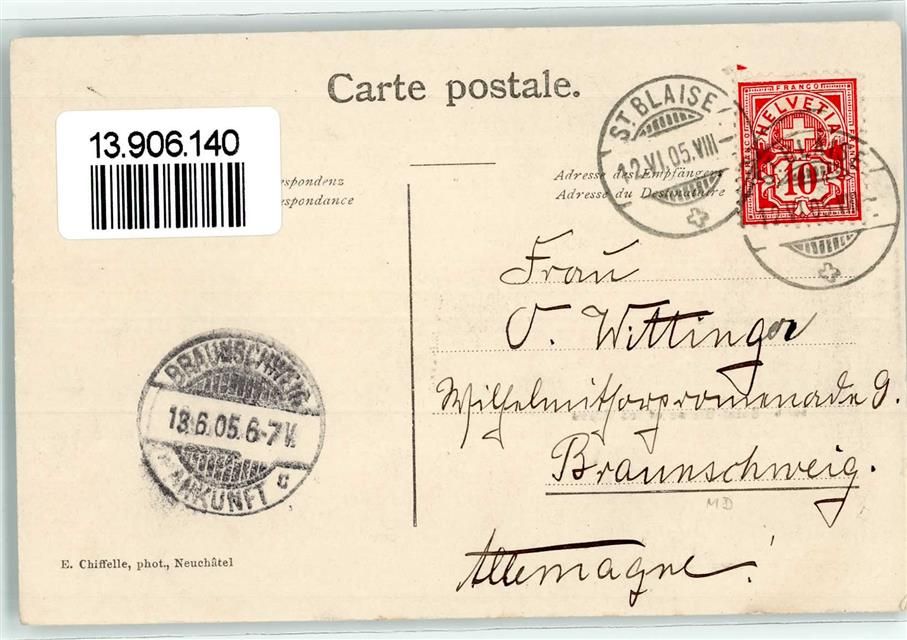 Carte postale.
13.906.140
espondenz
espondance
Adresse des Empfängers
Adresse du Destinataire
ST. BLAISE
12.VI.05.VIII
FRANCO
HELVETIA
10
Frau
O. Wittinger
Wilhelmithorpromenade 9.
Braunschweig.
MD
Allemagne!
BRAUNSCHWEIG
13.6.05.6-7V.
ANKUNFT
c
E. Chiffelle, phot., Neuchâtel